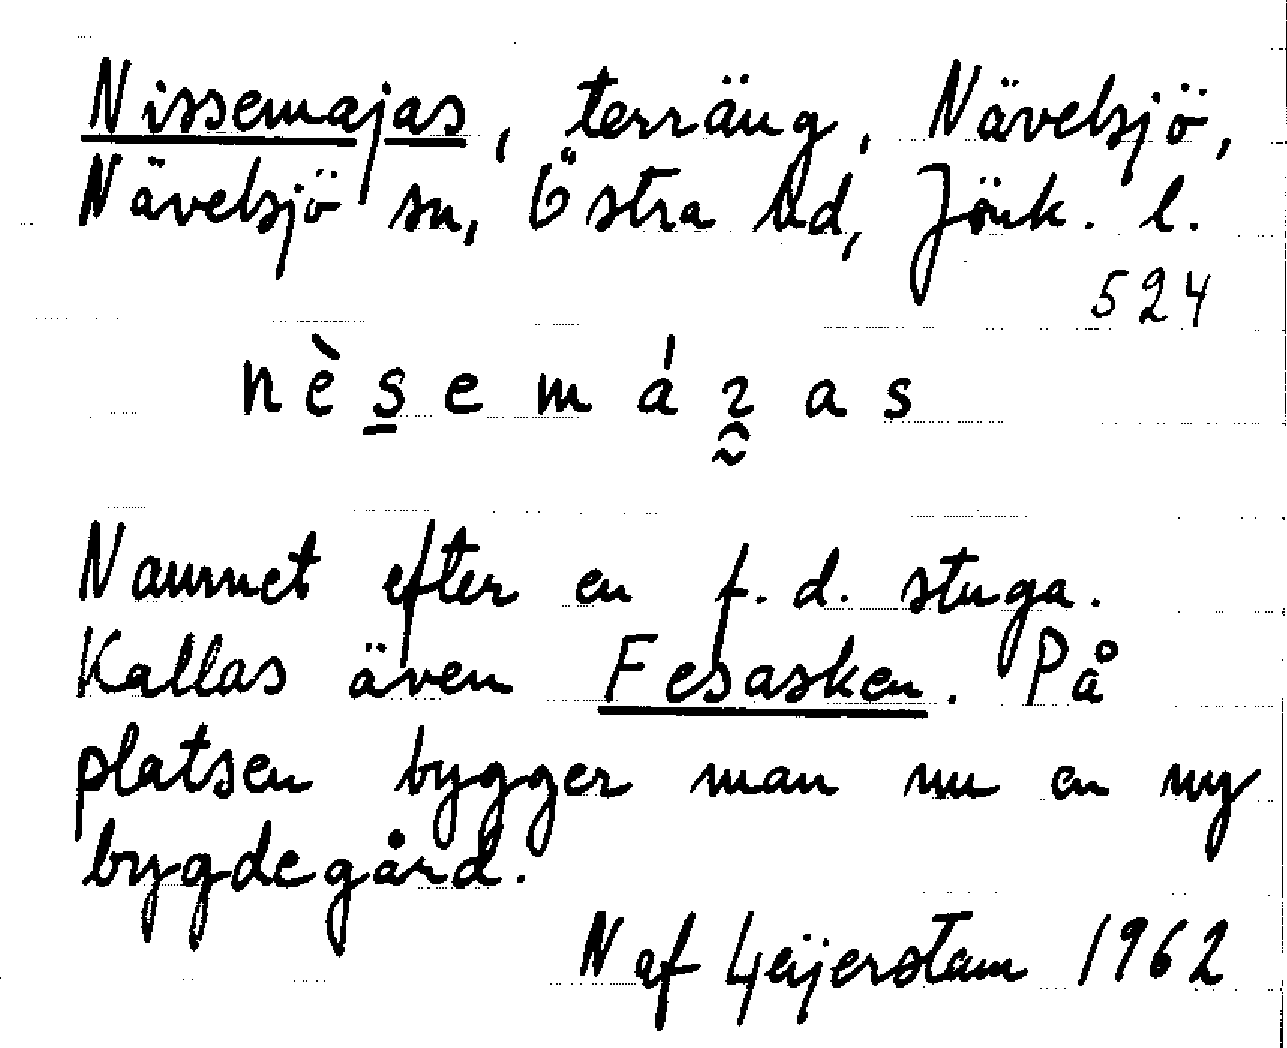 Nissemajas, terräng, Nävelsjö,
Nävelsjö sn, Östra hd, Jönk. l.
524
n è s̲ e m á ɿ a s
Namnet efter en f. d. stuga.
Kallas även Fesasken. På
platsen bygger man nu en ny
bygdegård.
N af Geijerstam 1962